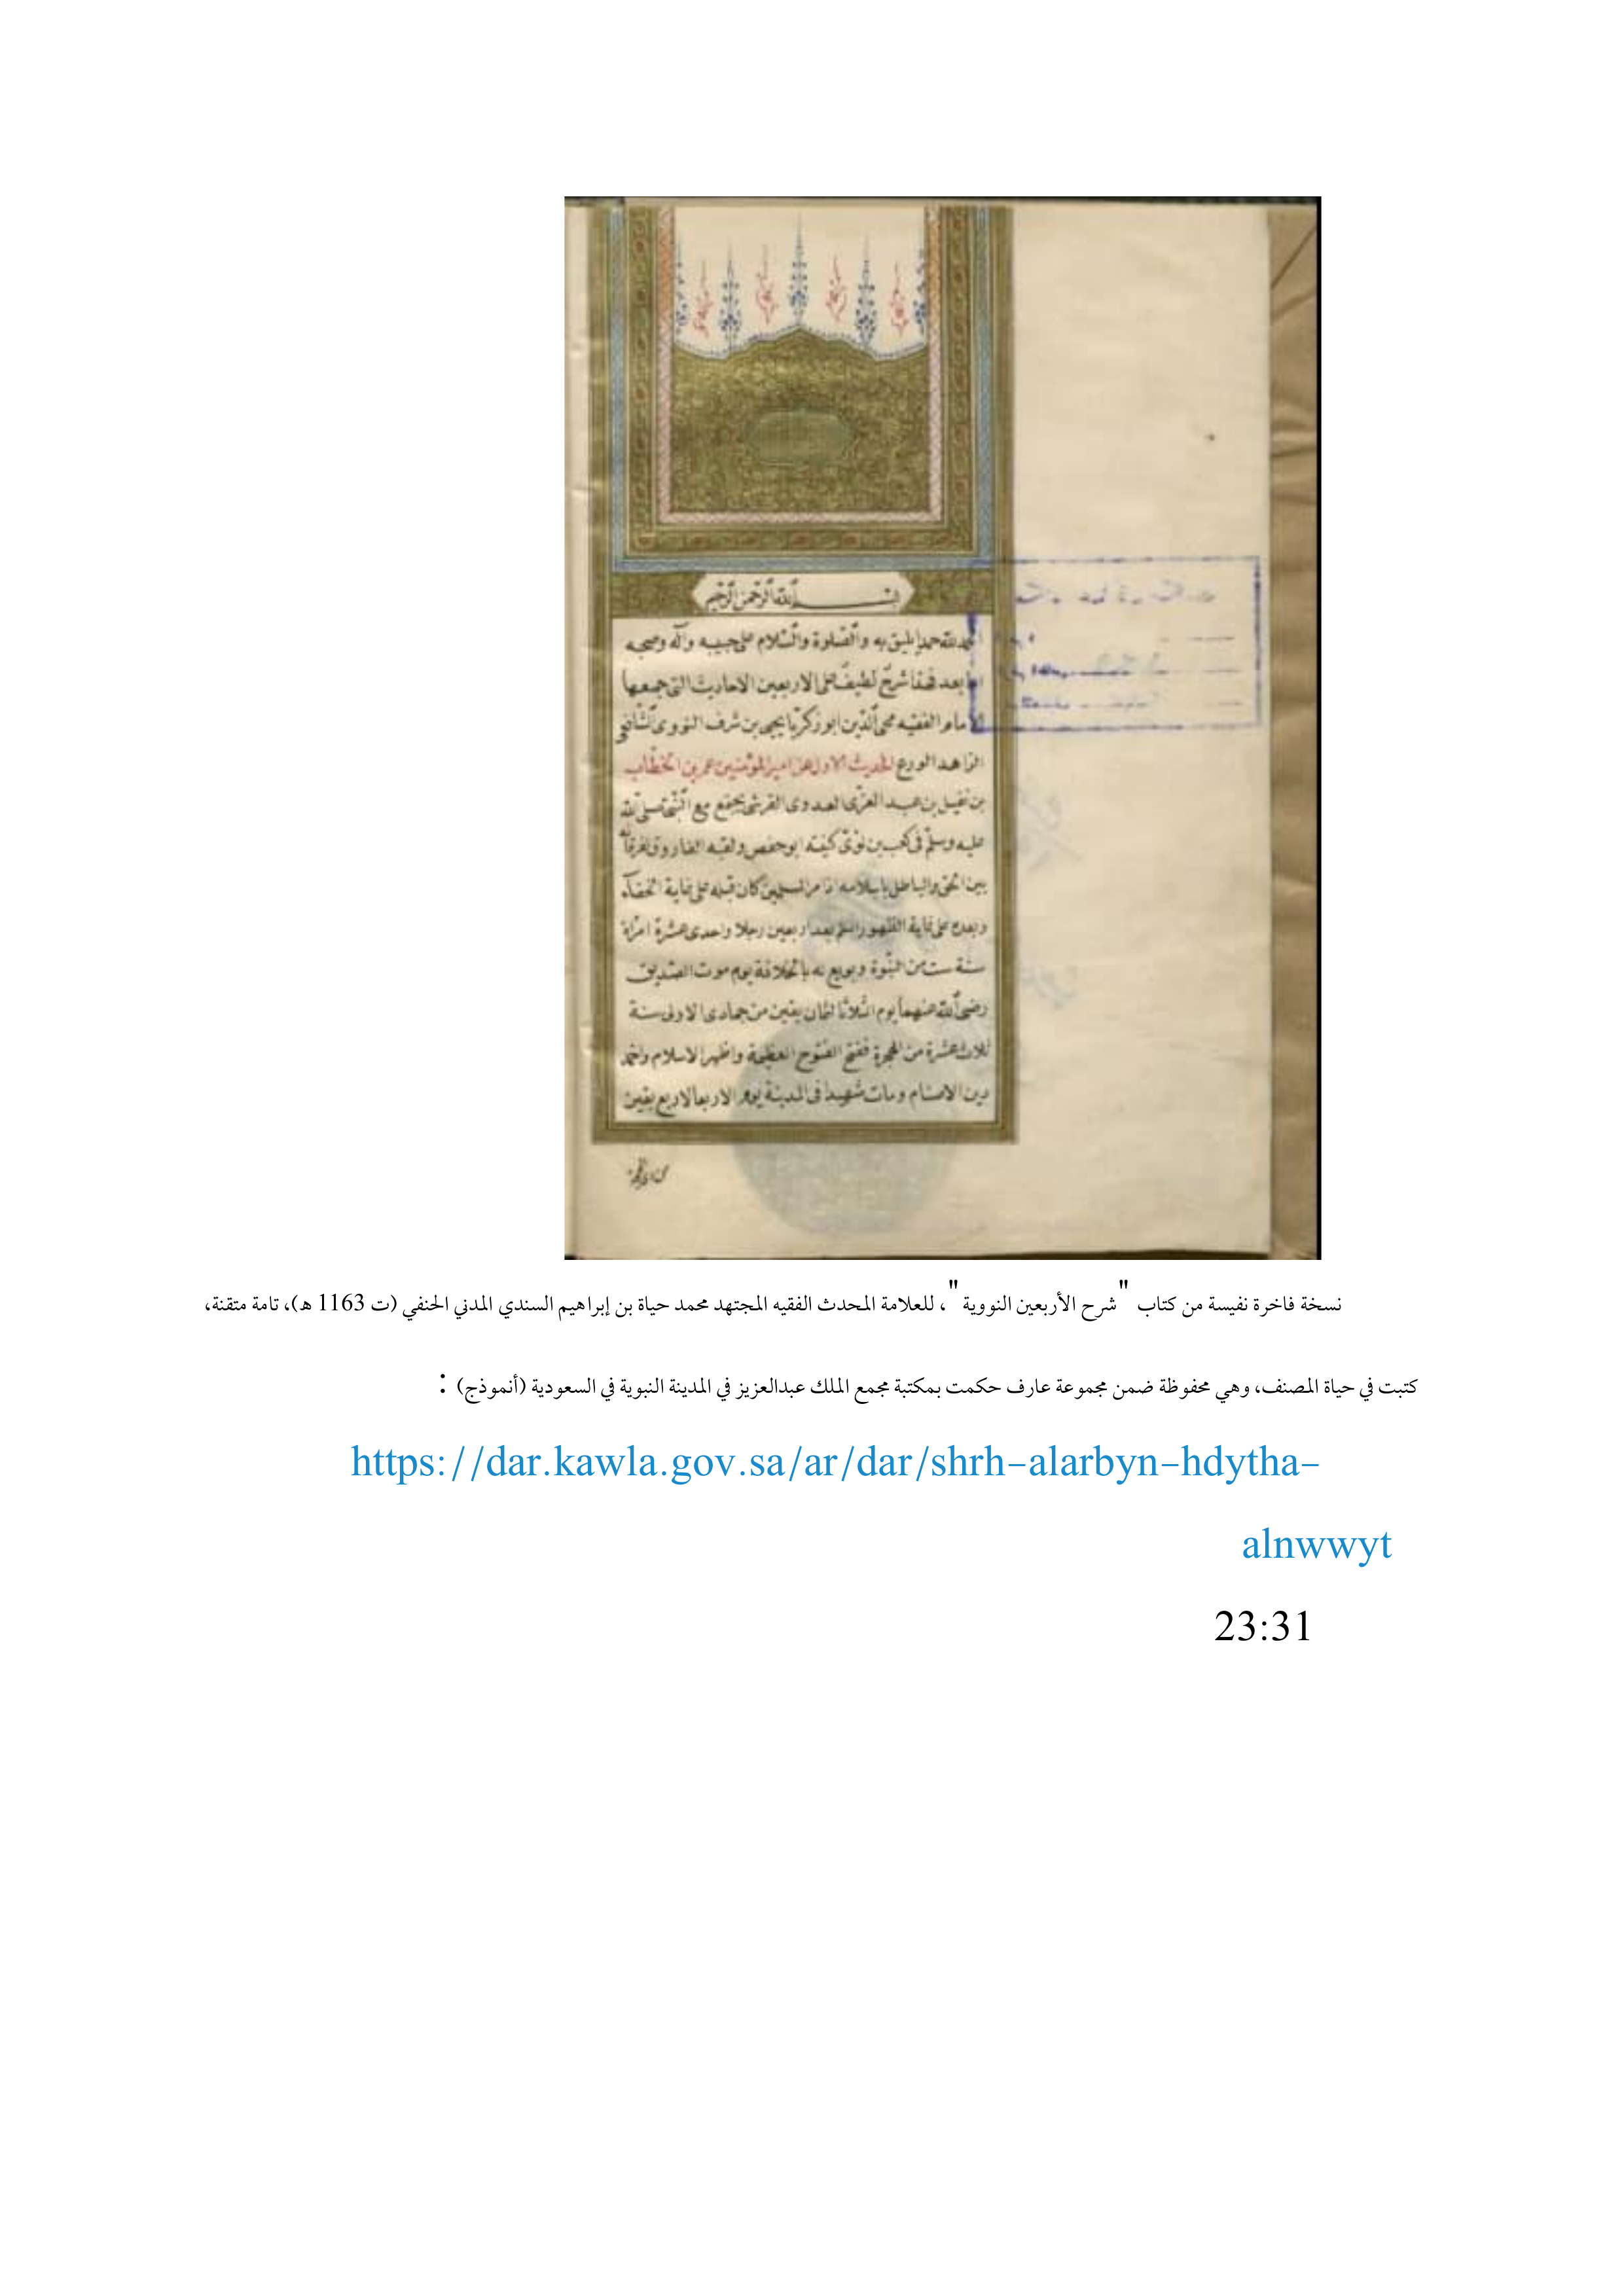 بسم الله الرحمن الرحيم
الحمد لله حمدا يليق به والصلوة والسلام على حبيبه وآله وصحبه
اما بعد فهذا شرح لطيف على الاربعين الاحاديث التى جمعها
الامام الفقيه محى الدين ابو زكريا يحيى بن شرف النووى الشافعى
الزاهد الورع الحديث الاول عن امير المؤمنين عمر بن الخطاب
بن نفيل بن عبد العزى العدوى القرشى يجتمع مع النبى صلى الله
عليه وسلم فى كعب بن لؤى كنيته ابو حفص ولقبه الفاروق لفرقانه
بين الحق والباطل باسلامه اذ امر المسلمين كان قبله على غاية الخفاء
وبعده على غاية الظهور اسلم بعد اربعين رجلا واحدى عشرة امراة
سنة ست من النبوة وبويع له بالخلافة يوم موت الصديق
رضى الله عنهما يوم الثلاثا لثمان بقين من جمادى الاولى سنة
ثلاث عشرة من الهجرة ففتح الفتوح العظيمة واظهر الاسلام واخمد
دين الاصنام ومات شهيدا فى المدينة يوم الاربعا لاربع بقين
نسخة فاخرة نفيسة من كتاب "شرح الأربعين النووية"، للعلامة المحدث الفقيه المجتهد محمد حياة بن إبراهيم السندي المدني الحنفي (ت 1163 هـ)، تامة متقنة،
كتبت في حياة المصنف، وهي محفوظة ضمن مجموعة عارف حكمت بمكتبة مجمع الملك عبدالعزيز في المدينة النبوية في السعودية (أنموذج) :
https://dar.kawla.gov.sa/ar/dar/shrh-alarbyn-hdytha-
alnwwyt
23:31